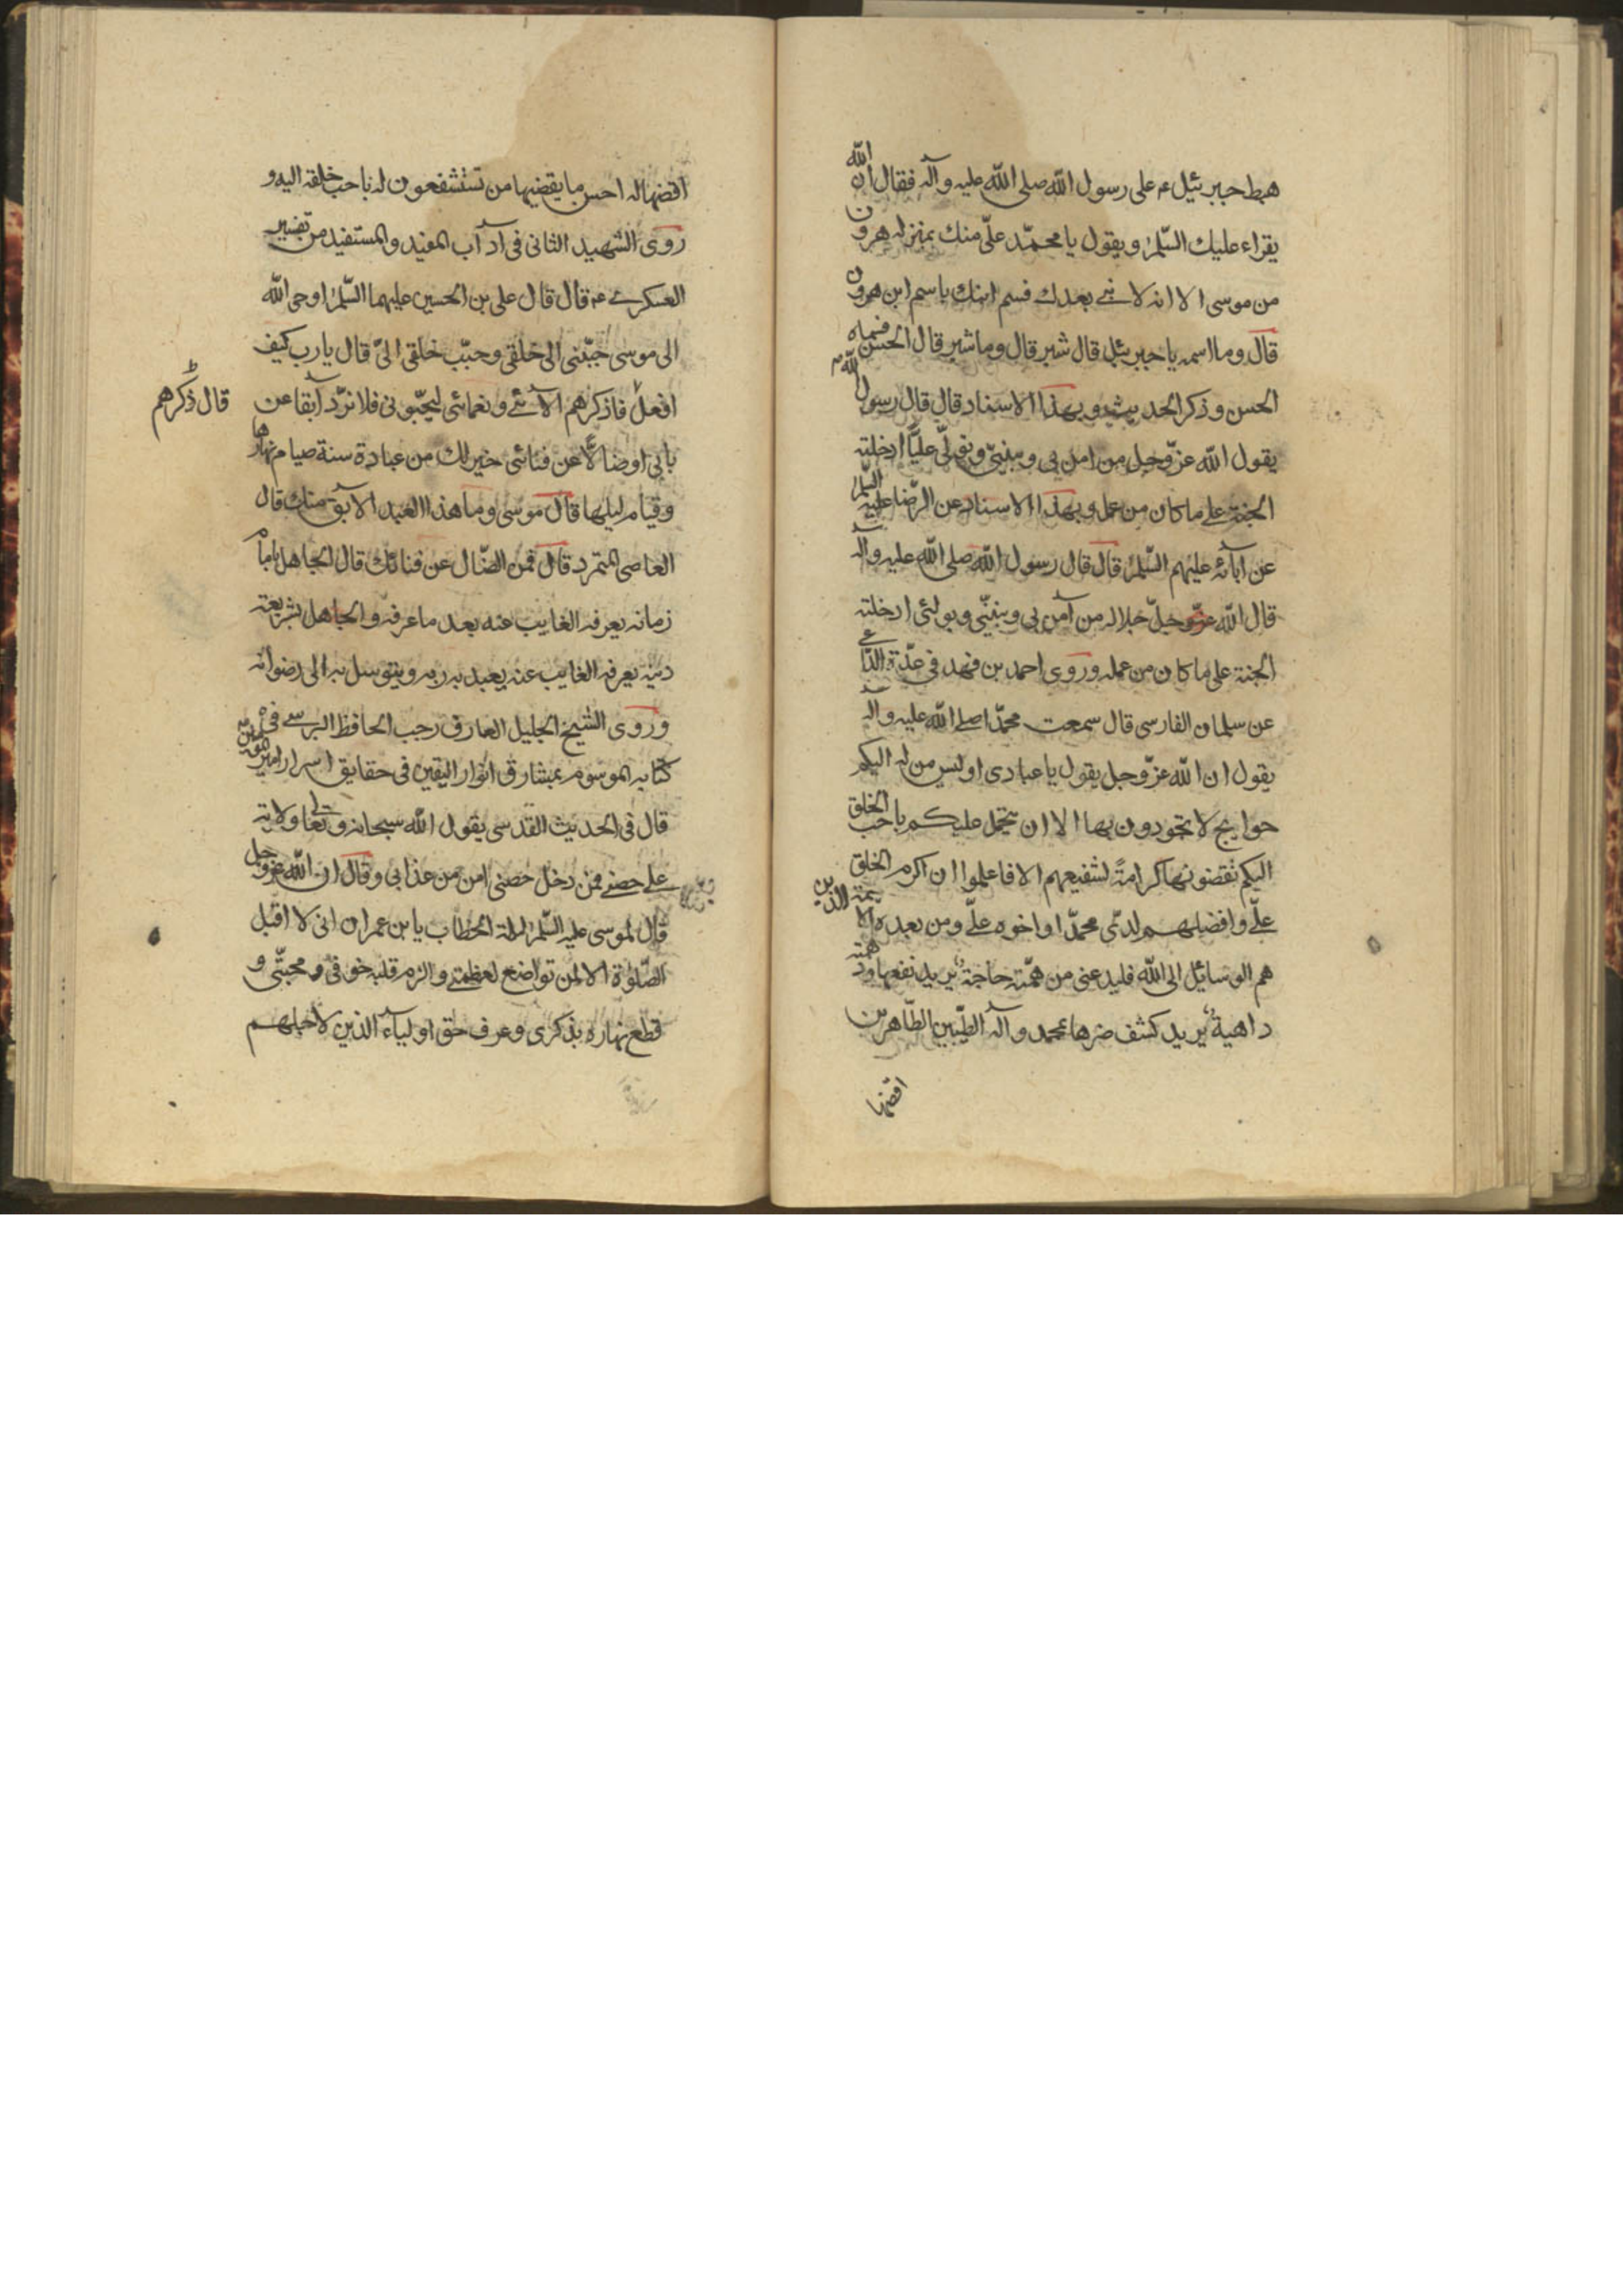 هبط جبرئيل ع على رسول الله صلى الله عليه وآله فقال ان الله
يقراء عليك السّلم ويقول يا محمّد علىّ منك بمنزلة هرون
من موسى الا انه لا نبى بعدك فسم ابنك باسم ابن هرون
قال وما اسمه يا جبرئيل قال شبر قال وما شبر قال الحسن فسماه
الحسن وذكر الحديث وبهذا الاسناد قال قال رسول الله ص
يقول الله عزّ وجل من امن بى وبنبيّى وتولّى عليّا ادخلته
الجنة على ما كان من عمل وبهذا الاسناد عن الرّضا عليه السّلم
عن آبائه عليهم السّلم قال قال رسول الله صلى الله عليه وآله
قال الله عزّ وجلّ جلاله من آمن بى وبنبيّى وبولىّ ادخلته
الجنة على ما كان من عمله وروى احمد بن فهد فى عدّة الدّاعى
عن سلمان الفارسى قال سمعت محمّدا صلى الله عليه وآله
يقول ان الله عزّ وجل يقول يا عبادى اوليس من له اليكم
حوايج لا تجودون بها الا ان يتحمل عليكم باحب الخلق
اليكم تقضونها كرامةً لشفيعهم الا فاعلموا ان اكرم الخلق
علىّ وافضلهم لدىّ محمّد واخوه علىّ ومن بعده الائمة الذين
هم الوسائل الى الله فليدعنى من همّته حاجة يريد نفعها او دهمته
داهية يريد كشف ضرها بمحمد وآله الطّيبين الطّاهرين
اقضها
اقضها له احسن ما يقضيها من تستشفعون له باحب خلقه اليه و
روى الشهيد الثانى فى آداب المفيد والمستفيد من تفسير
العسكرى ع قال قال على بن الحسين عليهما السّلم اوحى الله
الى موسى حبّبنى الى خلقى وحبّب خلقى الىّ قال يا رب كيف
افعل فاذكرهم آلائى ونعمائى ليحبّونى فلان تردّ آبقا عن
قال ذكرهم
بابى او ضالّا عن فنائى خير لك من عبادة سنة صيام نهارها
وقيام ليلها قال موسى وما هذا العبد الابق منك قال
العاصى المتمرد قال فمن الضّال عن فنائك قال الجاهل بامام
زمانه يعرفه الغايب عنه بعد ما عرفه والجاهل بشريعة
دينه يعرفه الغايب عنه يعبد به ربه ويتوسل به الى رضوانه
وروى الشيخ الجليل العارف رجب الحافظ البرسى فى
كتابه الموسوم بمشارق انوار اليقين فى حقايق اسرار امير المؤمنين
قال فى الحديث القدسى يقول الله سبحانه وتعالى ولاية
على حصنى فمن دخل حصنى امن من عذابى وقال ان الله عز وجل
قال لموسى عليه السّلم ليلة الخطاب يا بن عمران انى لا اقبل
الصّلوة الا لمن تواضع لعظمتى والزم قلبه خوفى ومحبّتى و
قطع نهاره بذكرى وعرف حق اوليآء الذين لاجلهم